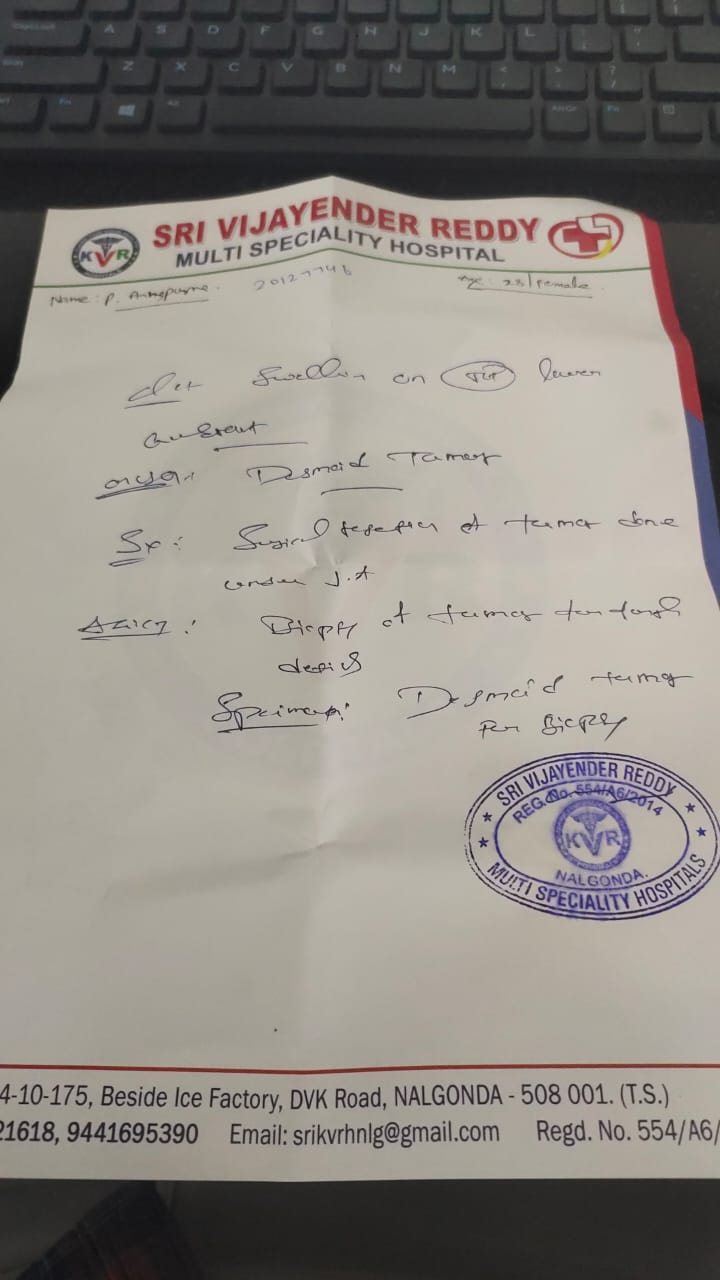 SRI VIJAYENDER REDDY
MULTI SPECIALITY HOSPITAL
KVR
Name: P. Annapurna. 20127746 Age: 28/Female.
swelling on lower
Quadrant
Desmoid Tumor
Sx: Surgical resection of tumor done
under
Biopsy of tumor
Specimen: Desmoid tumor
For Biopsy
SRI VIJAYENDER REDDY
REG.No. 554/A6/2014
KVR
NALGONDA.
MULTI SPECIALITY HOSPITALS
4-10-175, Beside Ice Factory, DVK Road, NALGONDA - 508 001. (T.S.)
21618, 9441695390 Email: srikvrhnlg@gmail.com Regd. No. 554/A6/
A S D F G H J K L
Z X C V B N M